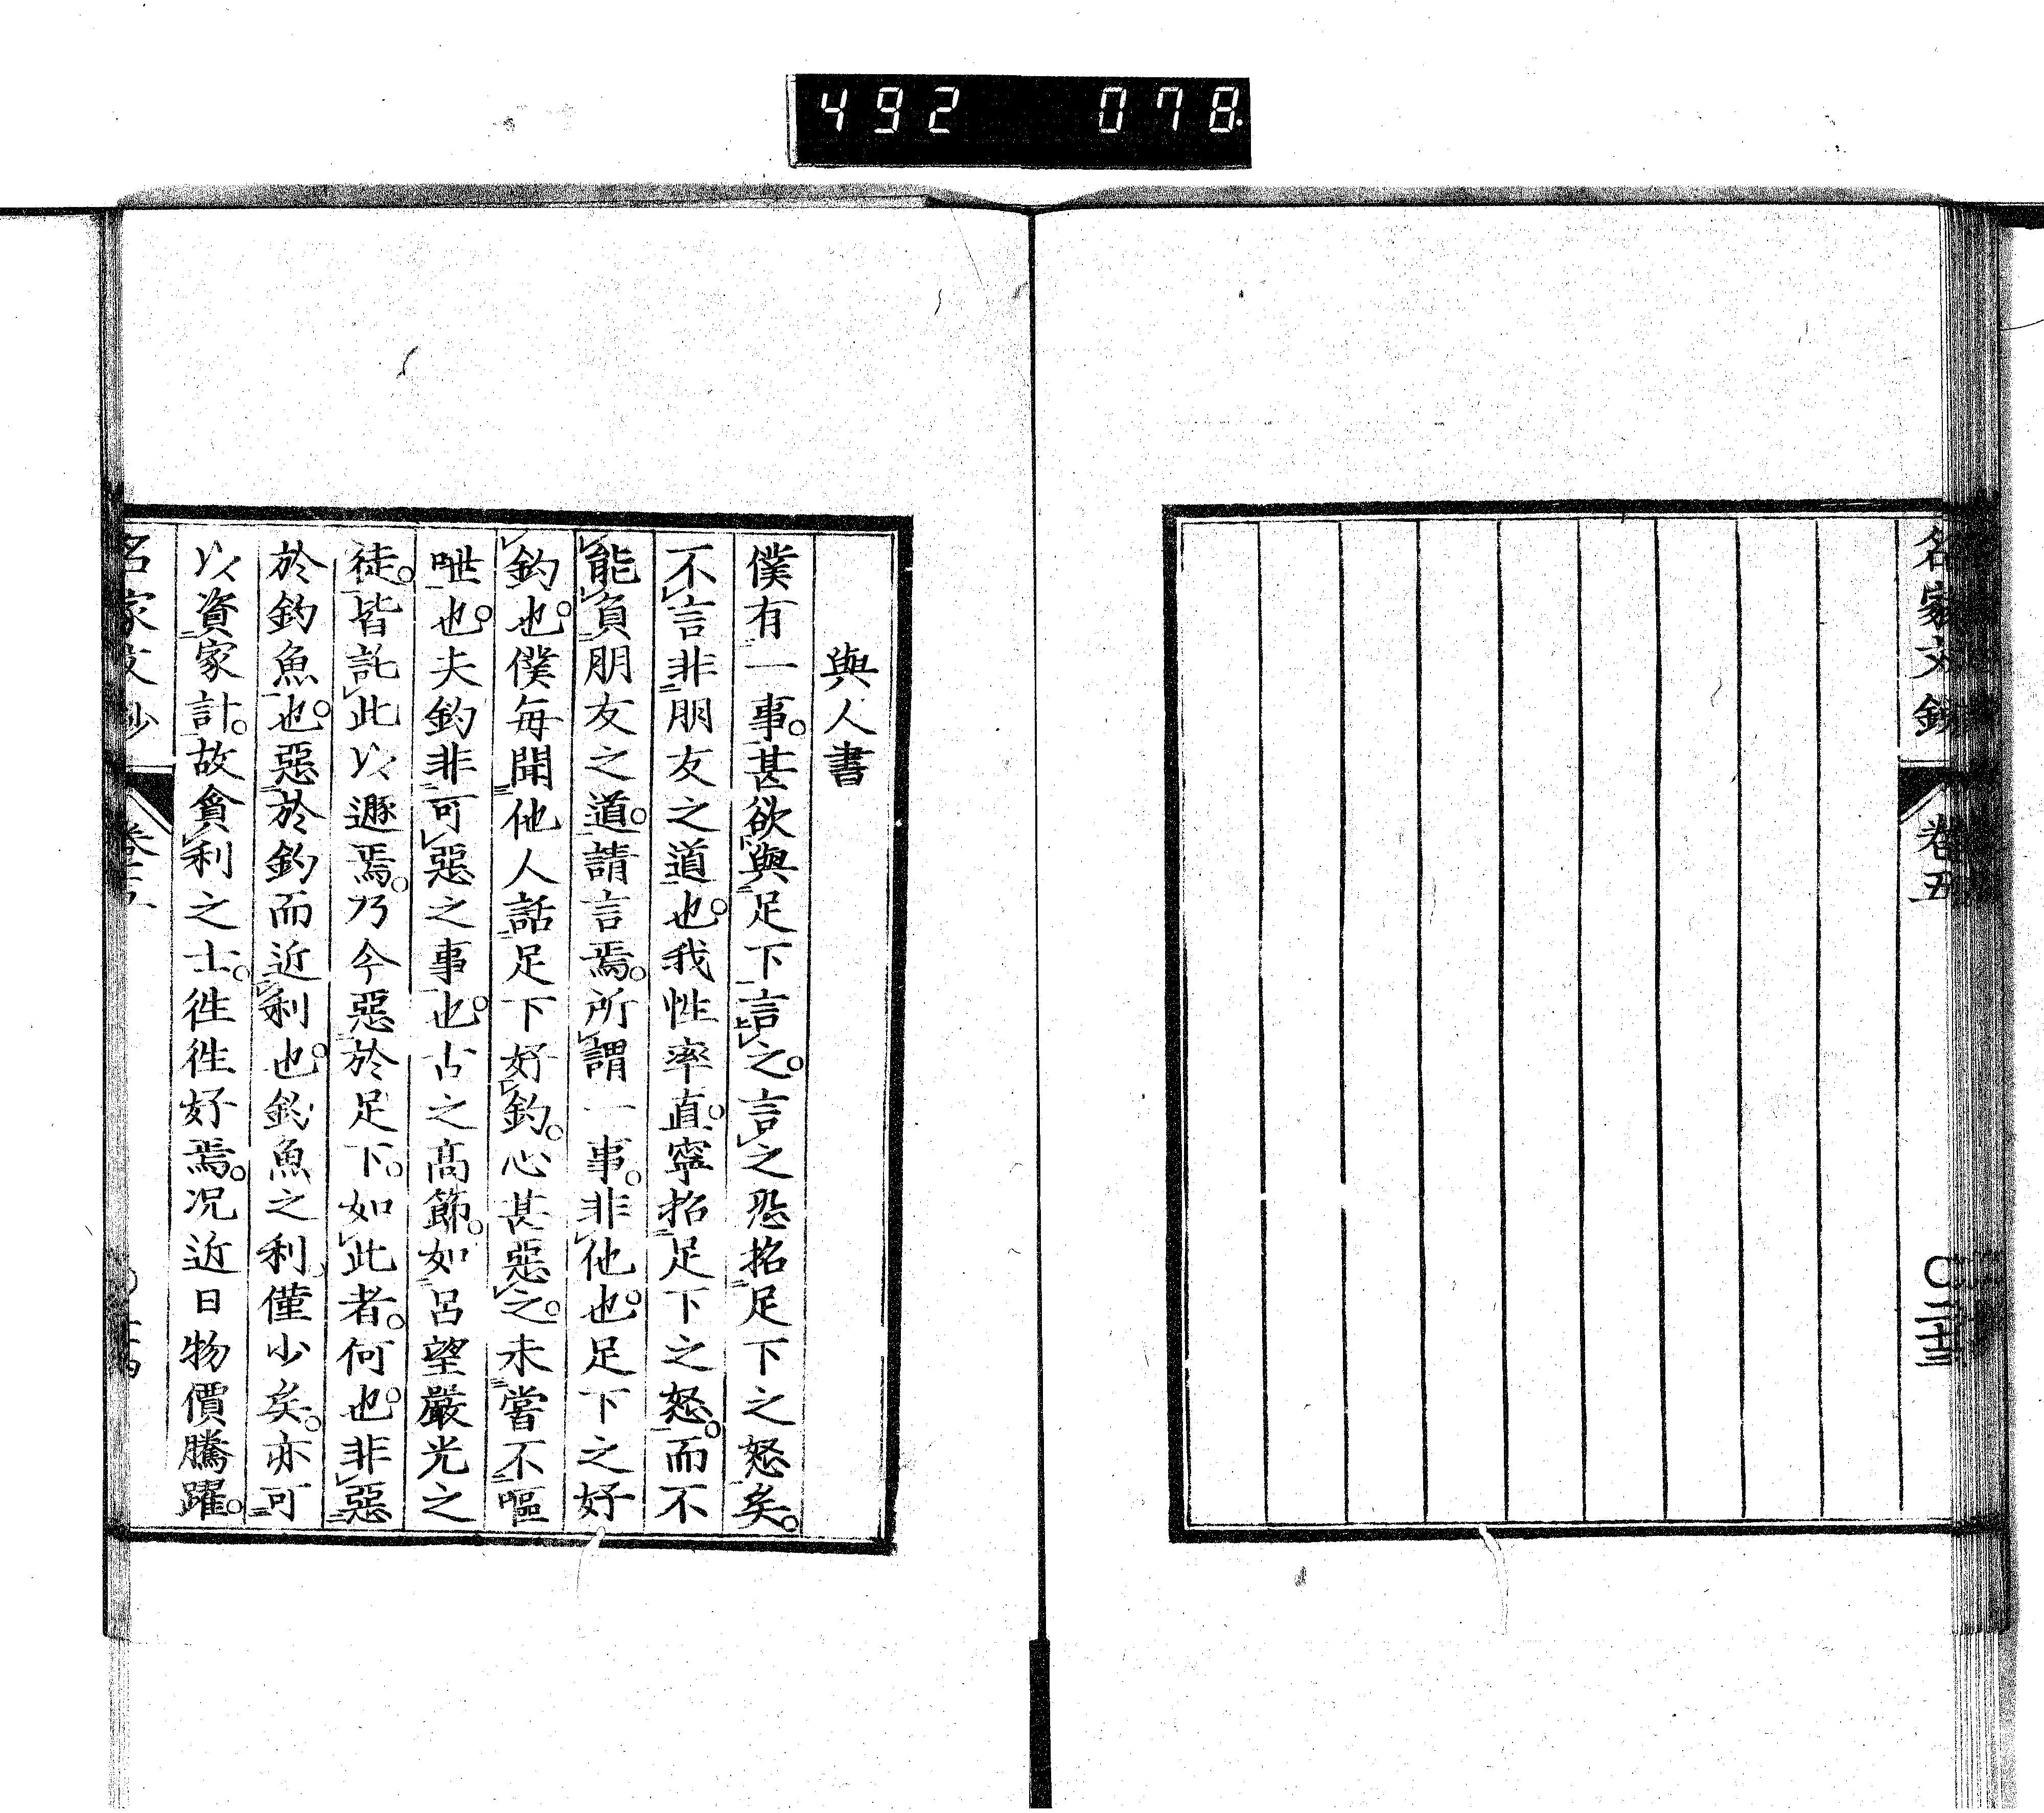 492 078
名家文鈔 卷五 〇二十三
與人書
僕有一事。甚欲與足下言之。言之恐招足下之怒矣。
不言非朋友之道也。我性率直。寧招足下之怒。而不
能負朋友之道。請言焉。所謂一事。非他也。足下之好
釣也。僕每聞他人話足下好釣。心甚惡之。未嘗不嘔
呭也。夫釣非可惡之事也。古之高節。如呂望嚴光之
徒。皆託此以遯焉。乃今惡於足下。如此者。何也。非惡
於釣魚也。惡於釣而近利也。釣魚之利僅少矣。亦可
以資家計。故貪利之士。徃徃好焉。况近日物價騰躍。
名家文鈔 卷五